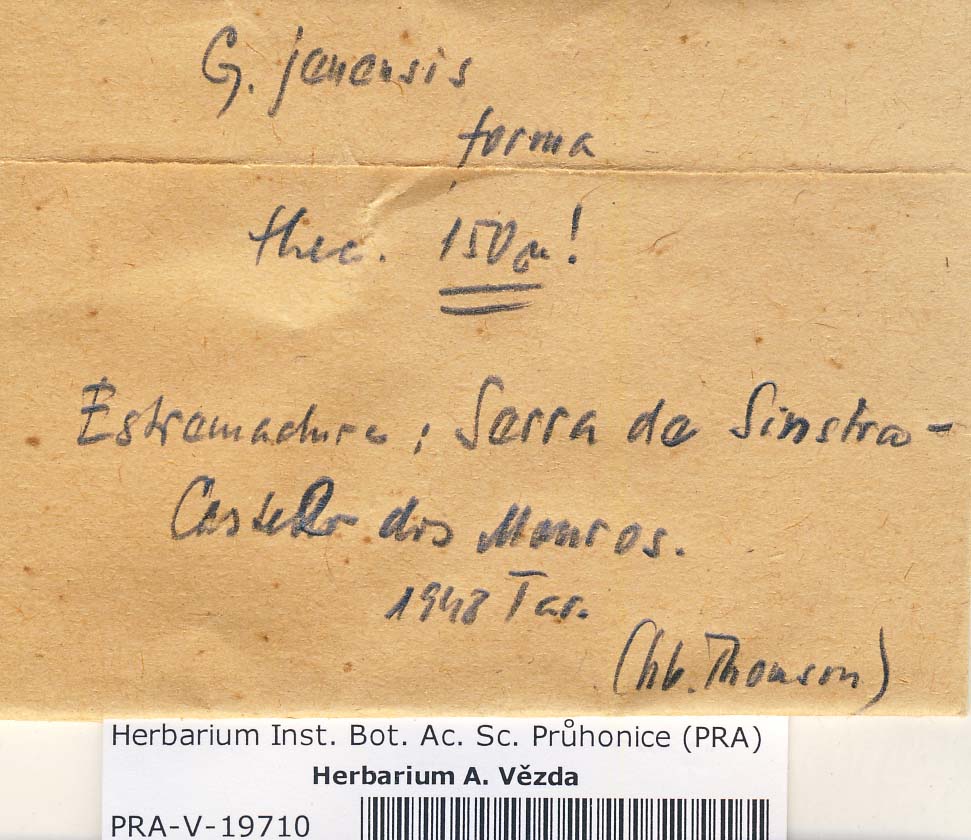 G. jenensis
forma
thec. 150µ!
Estremadura; Serra de Sinstra-
Castello dos Mouros.
1948 Tav.
(hb. Thomson)
Herbarium Inst. Bot. Ac. Sc. Průhonice (PRA)
Herbarium A. Vězda
PRA-V-19710